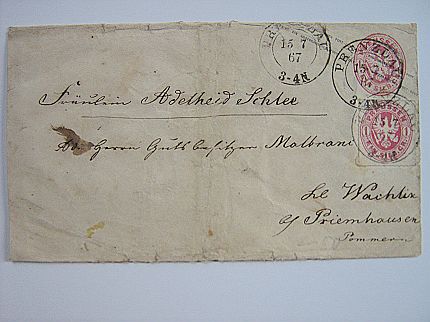 PRENZLAU
15 7
67
3-4N.
PRENZLAU
15 7
3-4N.
PREUSSEN
1 1
Fräulein Adelheid Schlee
Herrn Gutsbesitzer Malbranc
Kl. Wachlin
b/ Priemhausen
Pommern